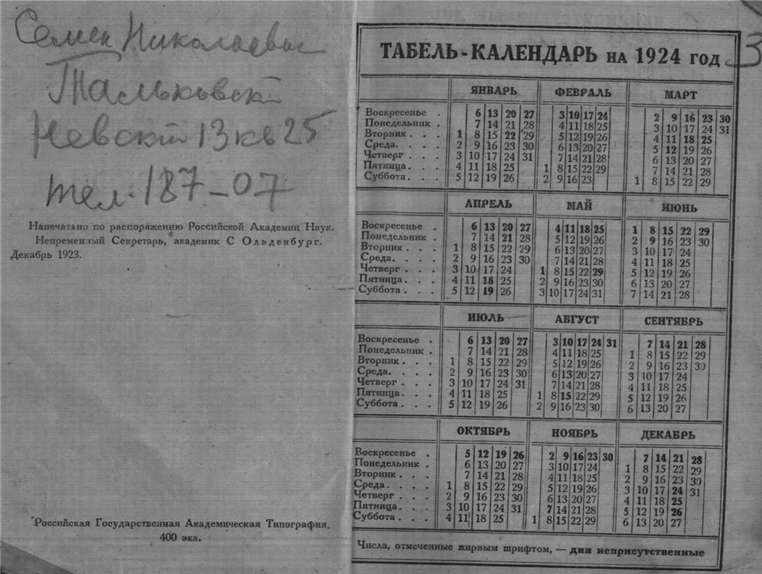 Семен Николаевич
Тальковский
Невский 13 кв 25
тел. 187-07
Напечатано по распоряжению Российской Академии Наук.
Непременный Секретарь, академик С Ольденбург.
Декабрь 1923.
Российская Государственная Академическая Типография.
400 экз.
ТАБЕЛЬ-КАЛЕНДАРЬ НА 1924 ГОД
3
ЯНВАРЬ ФЕВРАЛЬ МАРТ
Воскресенье . 6 13 20 27 3 10 17 24 2 9 16 23 30
Понедельник . 7 14 21 28 4 11 18 25 3 10 17 24 31
Вторник . . . 1 8 15 22 29 5 12 19 26 4 11 18 25
Среда. . . . 2 9 16 23 30 6 13 20 27 5 12 19 26
Четверг . . . 3 10 17 24 31 7 14 21 28 6 13 20 27
Пятница . . . 4 11 18 25 1 8 15 22 29 7 14 21 28
Суббота . . . 5 12 19 26 2 9 16 23 1 8 15 22 29
АПРЕЛЬ МАЙ ИЮНЬ
Воскресенье . 6 13 20 27 4 11 18 25 1 8 15 22 29
Понедельник . 7 14 21 28 5 12 19 26 2 9 16 23 30
Вторник . . . 1 8 15 22 29 6 13 20 27 3 10 17 24
Среда. . . . 2 9 16 23 30 7 14 21 28 4 11 18 25
Четверг . . . 3 10 17 24 1 8 15 22 29 5 12 19 26
Пятница . . . 4 11 18 25 2 9 16 23 30 6 13 20 27
Суббота . . . 5 12 19 26 3 10 17 24 31 7 14 21 28
ИЮЛЬ АВГУСТ СЕНТЯБРЬ
Воскресенье . 6 13 20 27 3 10 17 24 31 7 14 21 28
Понедельник . 7 14 21 28 4 11 18 25 1 8 15 22 29
Вторник . . . 1 8 15 22 29 5 12 19 26 2 9 16 23 30
Среда. . . . 2 9 16 23 30 6 13 20 27 3 10 17 24
Четверг . . . 3 10 17 24 31 7 14 21 28 4 11 18 25
Пятница. . . 4 11 18 25 1 8 15 22 29 5 12 19 26
Суббота . . . 5 12 19 26 2 9 16 23 30 6 13 20 27
ОКТЯБРЬ НОЯБРЬ ДЕКАБРЬ
Воскресенье . 5 12 19 26 2 9 16 23 30 7 14 21 28
Понедельник . 6 13 20 27 3 10 17 24 1 8 15 22 29
Вторник . . . 7 14 21 28 4 11 18 25 2 9 16 23 30
Среда. . . . 1 8 15 22 29 5 12 19 26 3 10 17 24 31
Четверг . . . 2 9 16 23 30 6 13 20 27 4 11 18 25
Пятница. . . 3 10 17 24 31 7 14 21 28 5 12 19 26
Суббота . . . 4 11 18 25 1 8 15 22 29 6 13 20 27
Числа, отмеченные жирным шрифтом, — дни неприсутственные